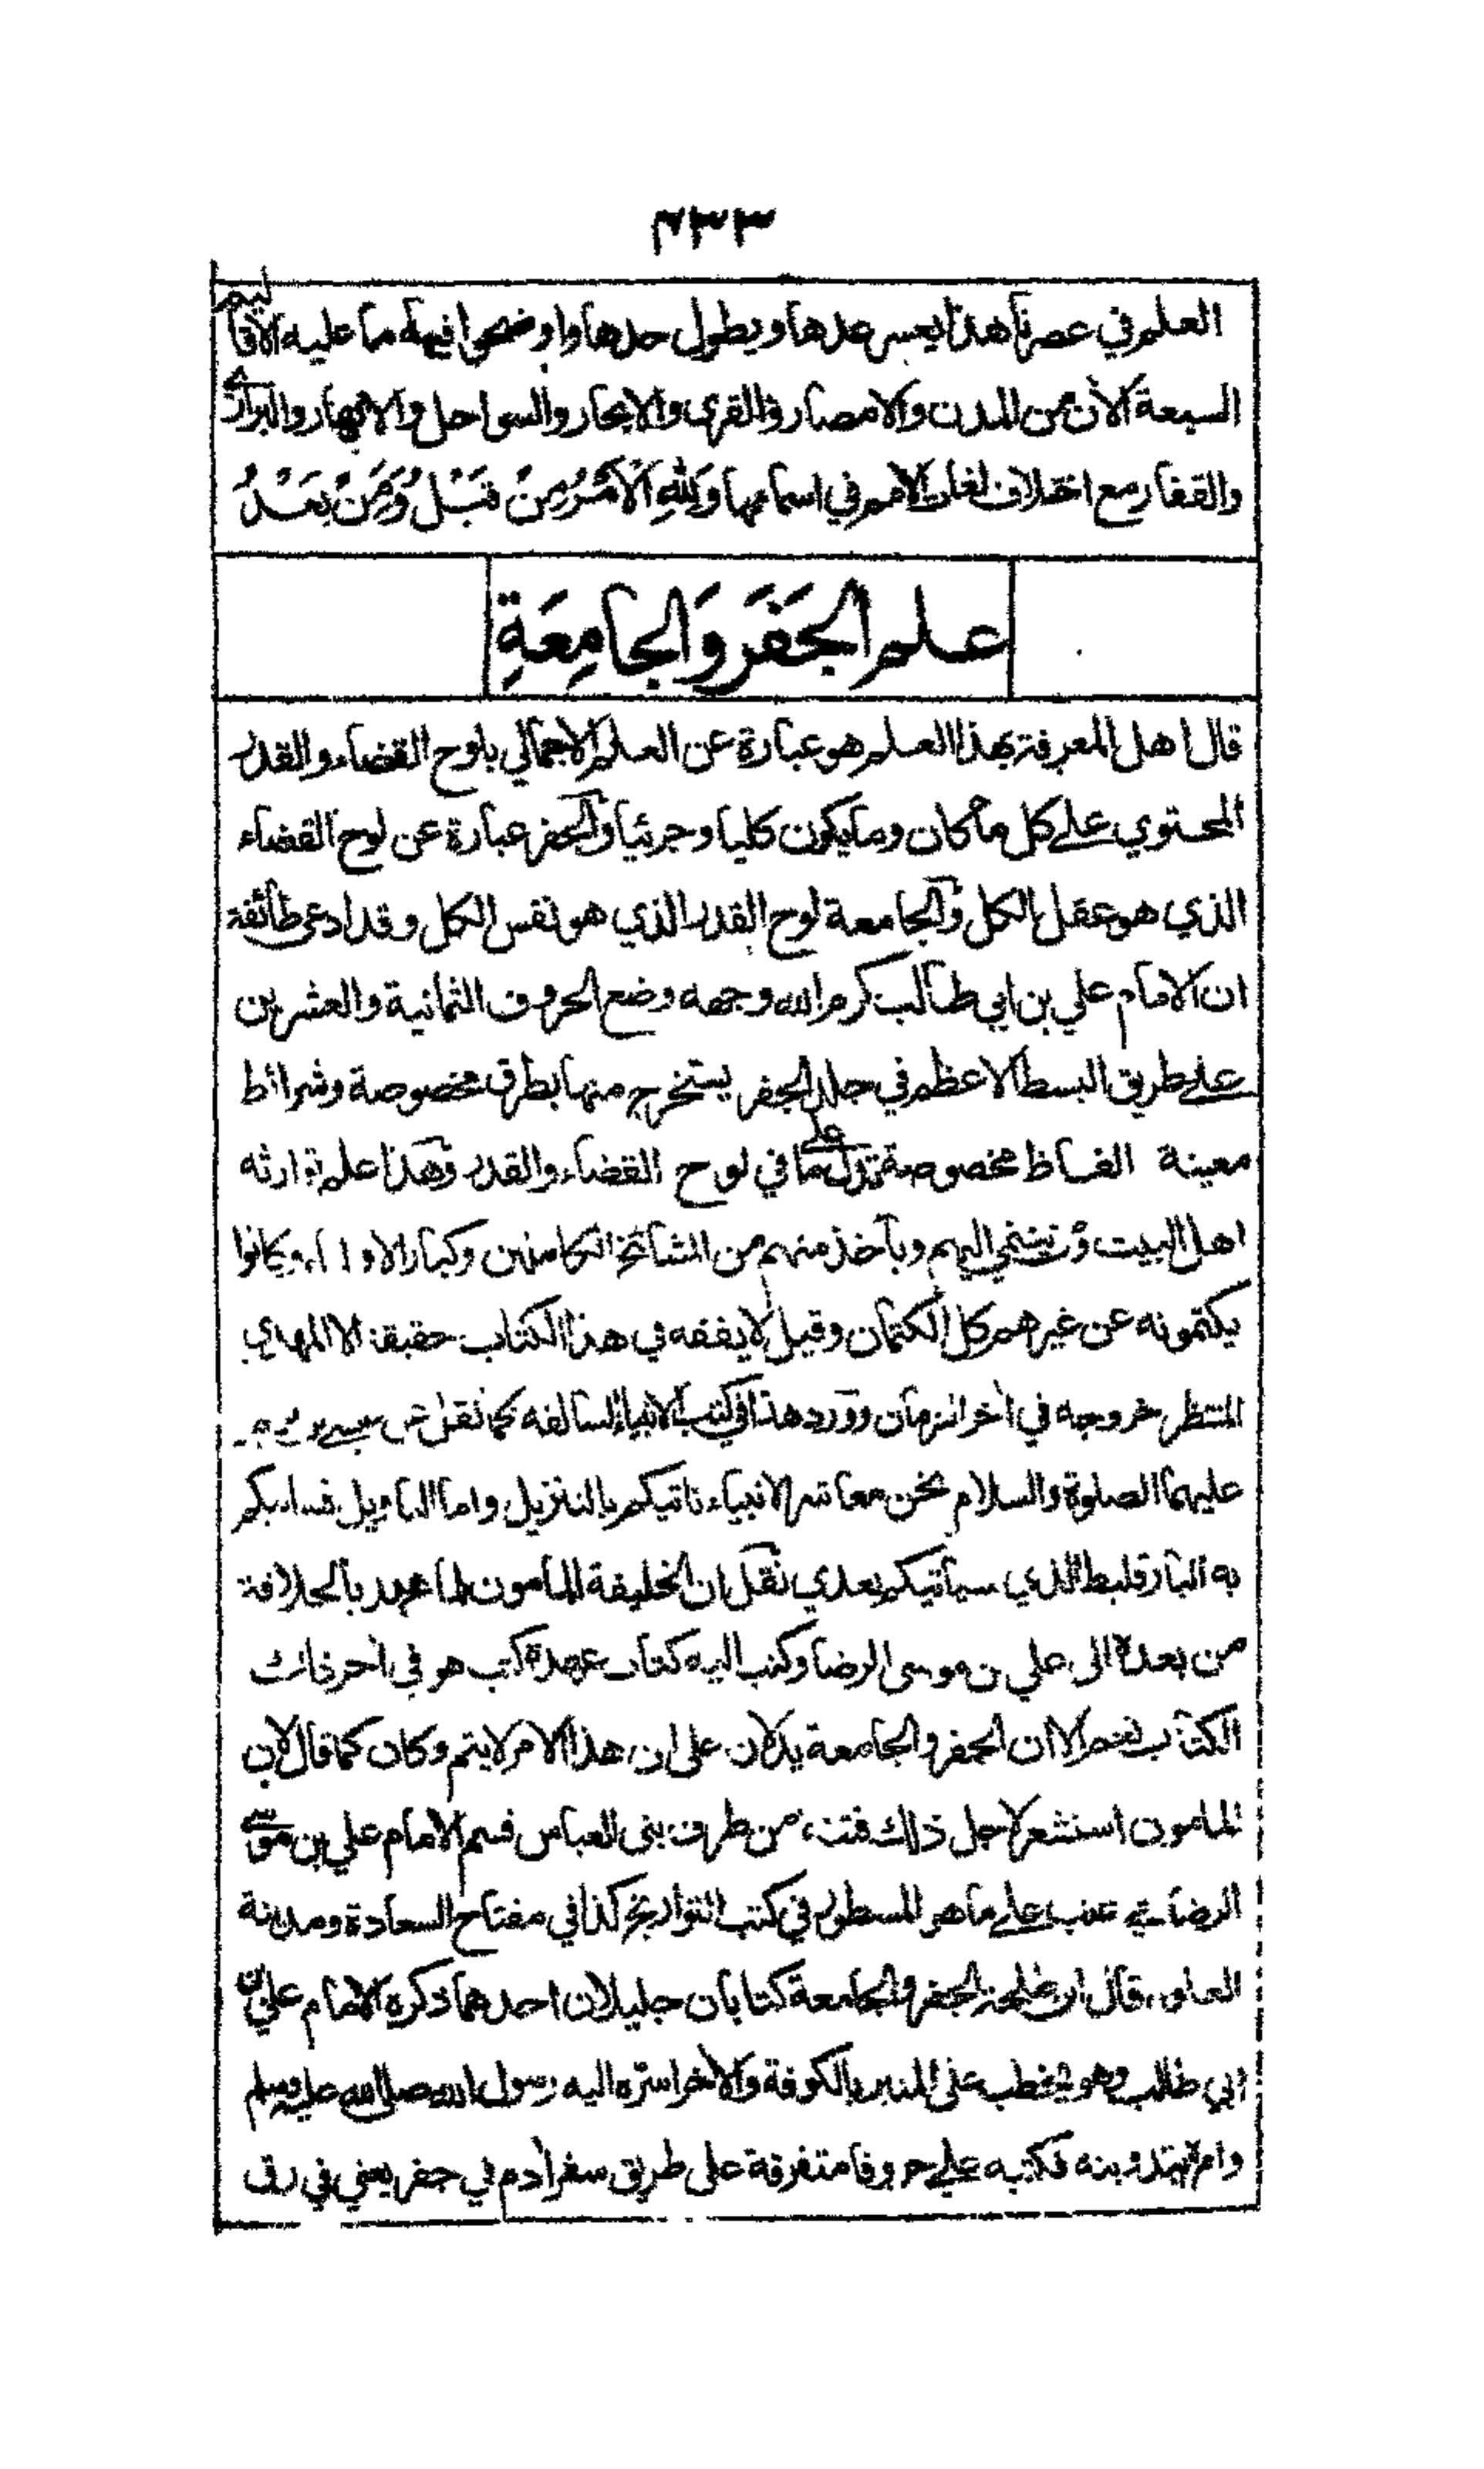 ٣٣٣
العلم في عصرنا هذا يعسر عدها ويطول حدها واوضحوا فيها ما عليه الاقاليم
السبعة الآن من المدن والامصار والقرى والابحار والسواحل والانهار والبراري
والقفار مع اختلاف لغات الامم في اسمائها وَلِلّٰهِ الْاَمْرُ مِنْ قَبْلُ وَمِنْ بَعْدُ
علم الجَفَر وَالجامِعَةِ
قال اهل المعرفة بهذا العلم هو عبارة عن العلم الاجمالي بلوح القضاء والقدر
المحتوي على كل ما كان وما يكون كليا وجزئيا والجفر عبارة عن لوح القضاء
الذي هو عقل الكل والجامعة لوح القدر الذي هو نفس الكل وقد ادعى طائفة
ان الامام علي بن ابي طالب كرم الله وجهه وضع الحروف الثمانية والعشرين
على طريق البسط الاعظم في جلد الجفر يستخرج منها بطرق مخصوصة وشرائط
معينة الفاظ مخصوصة تدل على ما في لوح القضاء والقدر وهذا علم توارثه
اهل البيت ومن ينتمي اليهم ويأخذ منهم من المشائخ الكاملين وكانوا
يكتمونه عن غيرهم كل الكتمان وقيل لا يفقه في هذا الكتاب حقيقة الا المهدي
المنتظر خروجه في آخر الزمان وورد هذا في كتب الانبياء السالفه كما نقل عن عيسى بن مريم
عليهما الصلوة والسلام نحن معاشر الانبياء ناتيكم بالتنزيل واما التاويل فسياتيكم
به البارقليط الذي سيأتيكم بعدي نقل ان الخليفة المامون لما عهد بالخلافة
من بعده الى علي بن موسى الرضا وكتب اليه كتاب عهده كتب هو في آخر ذلك
الكتاب نعم الا ان الجفر والجامعة يدلان على ان هذا الامر لا يتم وكان كما قال لان
المامون استشعر لاجل ذلك فتنة من طرف بني العباس فسم الامام علي بن موسى
الرضا في عنب على ما هو المسطور في كتب التواريخ كذا في مفتاح السعادة ومدينة
العلوم قال ابن طلحة الجفر والجامعة كتابان جليلان احدهما ذكره الامام علي بن
ابي طالب وهو يخطب على المنبر بالكوفة والآخر اسره اليه رسول الله صلى الله عليه وسلم
وامره بتدوينه فكتبه على حروفا متفرقة على طريق سفر آدم في جفر يعني في رق